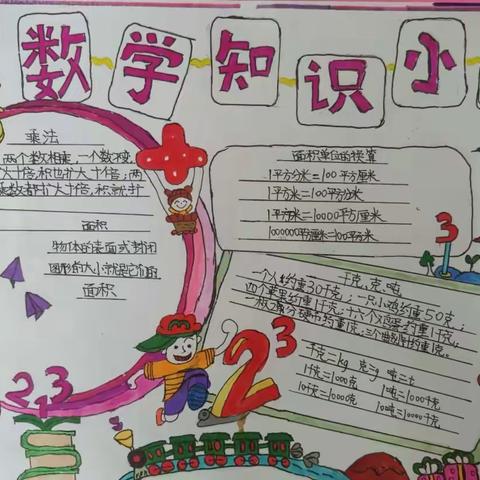 数学知识小
乘法
两个数相乘，一个数不变，
扩大十倍，积也扩大十倍；两
乘数都扩大十倍，积就扩
面积
物体的表面或封闭
图形的大小就是它们的
面积
面积单位的换算
1平方分米=100平方厘米
1平方米=100平方分米
1平方米=10000平方厘米
1000000平方厘米=100平方米
千克、克、吨
一个人约重30千克；一只小鸡约重50克；
四个苹果约重1千克；十六个鸡蛋约重1千克。
千克=kg 克=g 吨=t
1千克=1000克 1吨=1000千克
10千克=10000克 10吨=10000千克
3
23
2
3